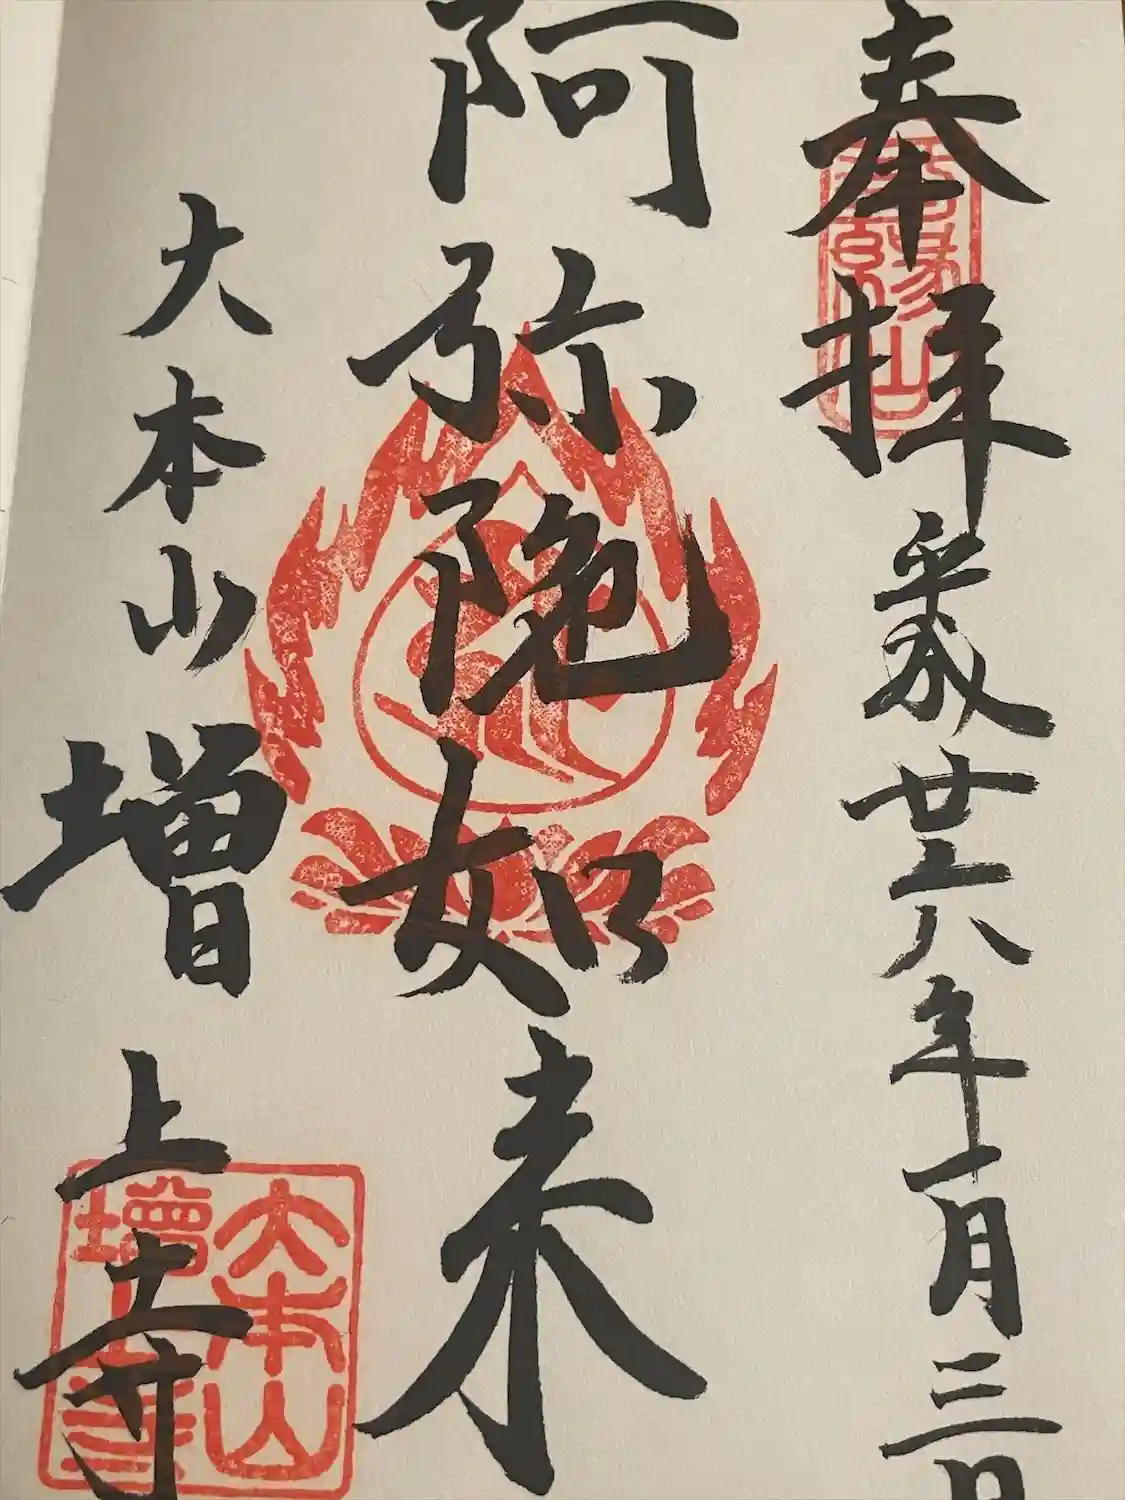 奉拝
平成廿六年一月三日
阿弥陀如来
大本山 増上寺
大本山
增上寺